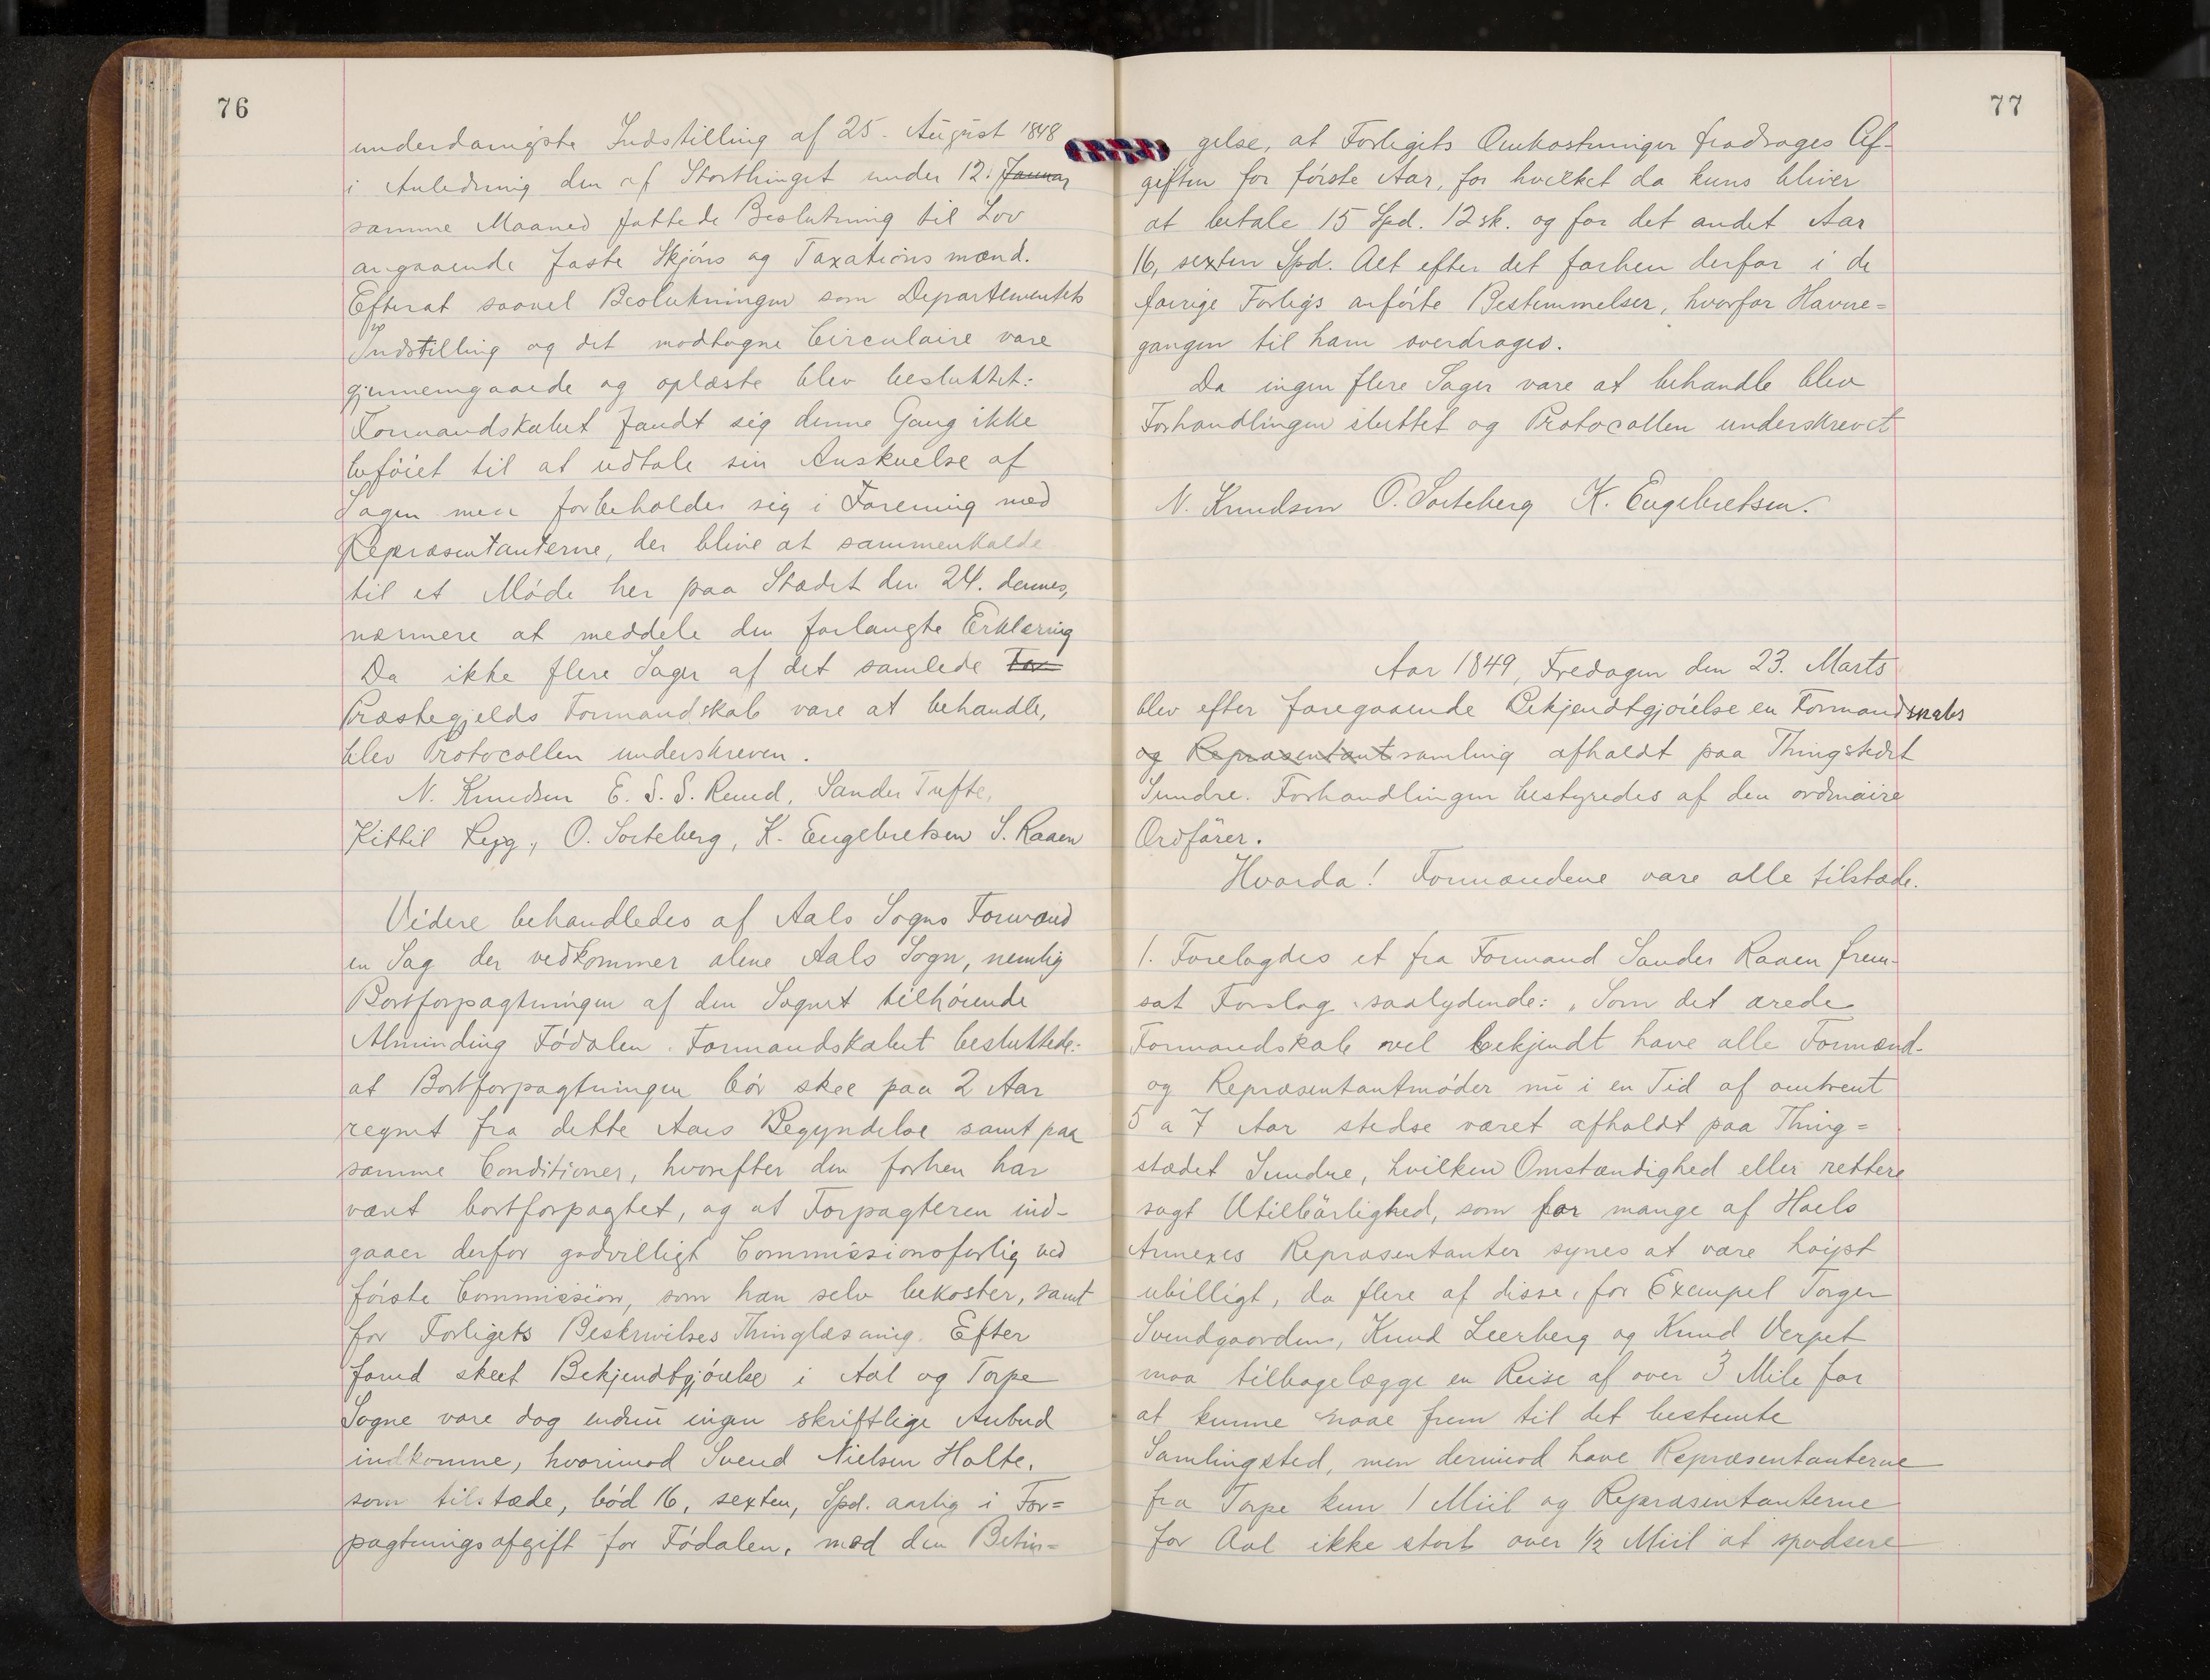 76
underdanigste Indstilling af 25. August 1848
i Anledning den af Storthinget under 12. Januar
samme Maaned fattede Beslutning til Lov
angaaende faste Skjöns og Taxationsmænd.
Efterat saavel Beslutningen som Departementets
Indstilling og det modtagne Circulaire vare
gjennemgaaede og oplæste blev besluttet:
Formandskabet fandt sig denne Gang ikke
beföiet til at udtale sin Anskuelse af
Sagen men forbeholder sig i Forening med
Repræsentanterne, der blive at sammenkalde
til et Möde her paa Stædet den 24. dennes,
nærmere at meddele den forlangte Erklæring
Da ikke flere Sager af det samlede For
Præstegjelds Formandskab vare at behandle,
blev Protocollen underskreven.
N. Knudsen E. S. S. Reud, Sander Tufte,
Kittil Rejg., O. Sorteberg, K. Engebretsen S. Raaen
Videre behandledes af Aals Sogns Formænd
en Sag der vedkommer alene Aals Sogn, nemlig
Bortforpagtningen af den Sognet tilhörende
Alminding Födalen. Formandskabet besluttede:
at Bortforpagtningen bör skee paa 2 Aar
regnet fra dette Aars Begyndelse samt paa
samme Conditioner, hvorefter den forhen har
været bortforpagtet, og at Forpagteren ind-
gaaer derfor godvilligt Commissionsforlig ved
förste Commission, som han selv bekoster, samt
for Forligets Beskrivelses Thinglæsning. Efter
forud skeet Bekjendtgjörelse i Aal og Torpe
Sogne vare dog endnu ingen skriftlige Anbud
indkomne, hvorimod Svend Nielsen Holte,
som tilstæde, böd 16, sexten, Spd. aarlig i For=
pagtningsafgift for Födalen, med den Betin=
77
gelse, at Forligets Omkostninger fradrages Af-
giften for förste Aar, for hvilket da kuns bliver
at betale 15 Spd. 12 sk. og for det andet Aar
16, sexten Spd. Alt efter det forhen derfor i de
forrige Forligs anförte Bestemmelser, hvorfor Havne=
gangen til ham overdrages.
Da ingen flere Sager vare at behandle blev
Forhandlingen sluttet og Protocollen underskrevet
N. Knudsen O. Sorteberg K. Engebretsen.
Aar 1849, Fredagen den 23. Marts
blev efter foregaaende Bekjendtgjörelse en Formandskabs
og Repræsentantsamling afholdt paa Thingstedet
Sundre. Forhandlingen bestyredes af den ordinaire
Ordförer.
Hvorda! Formændene vare alle tilstæde.
1. Forelagdes et fra Formand Sander Raaen frem-
sat Forslag saalydende: "Som det ærede
Formandskab vel bekjendt have alle Formænd-
og Repræsentantmöder nu i en Tid af omtrent
5 a 7 Aar stedse været afholdt paa Thing=
stædet Sundre, hvilken Omstændighed eller rettere
sagt Utilbörlighed, som for mange af Hoels
Annexes Repræsentanter synes at være höist
ubilligt, da flere af disse, for Exempel Torger
Svendgaarden, Knud Leerberg og Knud Verpet
maa tilbagelægge en Reise af over 3 Mile for
at kunne naae frem til det bestemte
Samlingsted, men derimod have Repræsentanterne
fra Torpe kun 1 Miil og Repræsentanterne
for Aal ikke stort over 1/2 Miil at spadsere